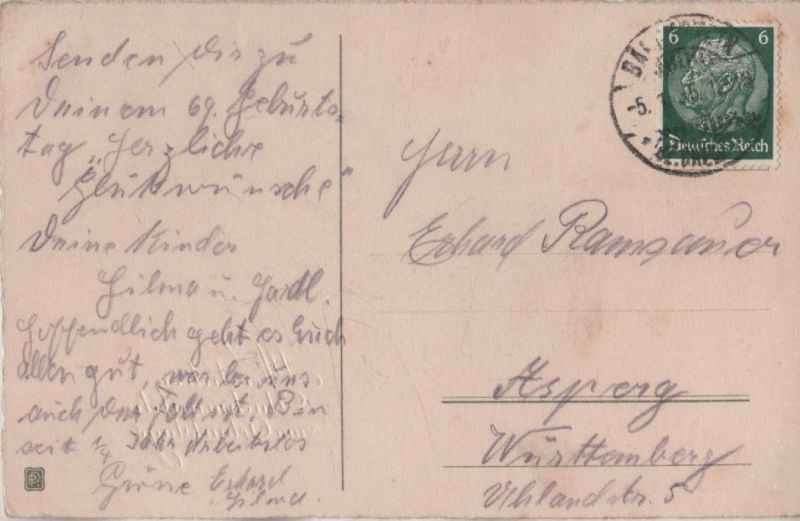 Senden Dir zu
Deinem 69. Geburts-
tag „Herzliche
Glükwünsche"
Deine Kinder
Hilma u.
Hoffendlich geht es Euch
allen gut, was bei uns
auch der Fall ist. Bin
seit 1/2 Jahr Arbeitslos
Grüse Erhard
Hilma.
6 6
Deutsches Reich
-5.
Herrn
Erhard Ramsauer
Asperg
Württemberg
Uhlandstr. 5